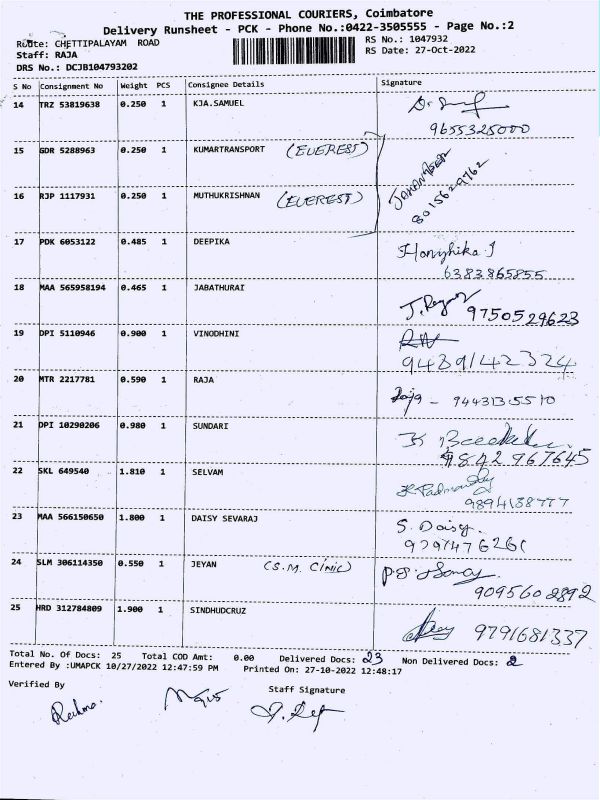 THE PROFESSIONAL COURIERS, Coimbatore
Delivery Runsheet - PCK - Phone No.:0422-3505555 - Page No.:2
Route: CHETTIPALAYAM ROAD
RS No.: 1047932
Staff: RAJA
RS Date: 27-Oct-2022
DRS No.: DCJB104793202
S No Consignment No Weight PCS Consignee Details Signature
14 TRZ 53819638 0.250 1 KJA.SAMUEL
9655325000
15 GDR 5288963 0.250 1 KUMARTRANSPORT (EVEREST)
16 RJP 1117931 0.250 1 MUTHUKRISHNAN (EVEREST)
8015629762
17 PDK 6053122 0.485 1 DEEPIKA
6383865855
18 MAA 565958194 0.465 1 JABATHURAI
9750529623
19 DPI 5110946 0.900 1 VINODHINI
20 MTR 2217781 0.590 1 RAJA Raja -
21 DPI 10290206 0.980 1 SUNDARI
9842 967645
22 SKL 649540 1.810 1 SELVAM
9894138777
23 MAA 566150650 1.800 1 DAISY SEVARAJ S. Daisy.
24 SLM 306114350 0.550 1 JEYAN (S.M. CINIC)
9095602892
25 HRD 312784809 1.900 1 SINDHUDCRUZ 9791681337
Total No. Of Docs: 25 Total COD Amt: 0.00 Delivered Docs: 23 Non Delivered Docs: 2
Entered By :UMAPCK 10/27/2022 12:47:59 PM Printed On: 27-10-2022 12:48:17
Verified By Staff Signature